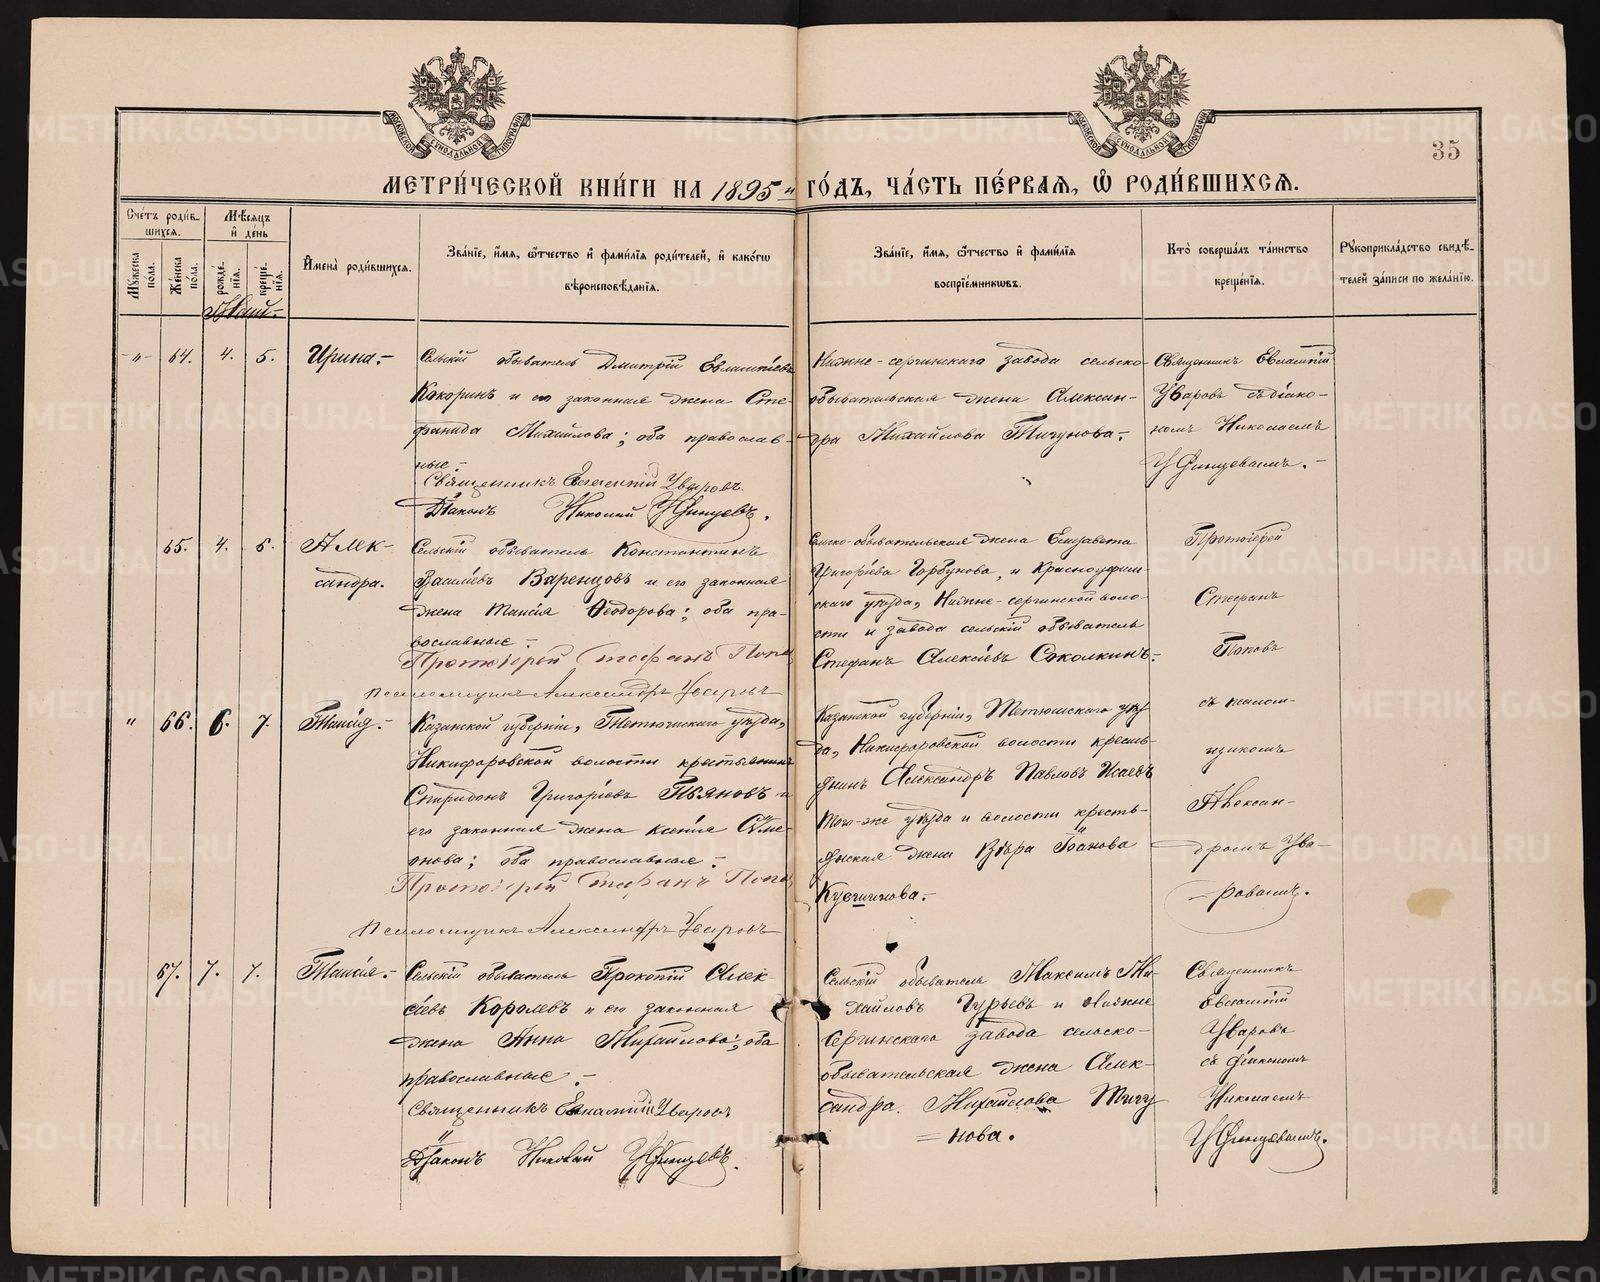 МОСКОВСКОЙ СУНОДАЛЬНОЙ ТИПОГРАФІИ
МОСКОВСКОЙ СУНОДАЛЬНОЙ ТИПОГРАФІИ
35
МЕТРИ́ЧЕСКОЙ КНИ́ГИ НА 1895 й ГО́ДЪ, ЧА́СТЬ ПЕ́РВАЯ, Ѡ РОДИ́ВШИХСЯ.
Сче́тъ роди́в-
шихся.
Му́жеска по́ла.
Же́нска по́ла.
Мѣ́сяцъ и҆ де́нь
рожде́нія.
креще́нія.
И҆мена̀ роди́вшихся.
Зва́ніе, и҆́мя, ѻ҆́тчество и҆ фами́лія роди́телей, и҆ како́гѡ
вѣроисповѣ́данія.
Зва́ніе, и҆́мя, ѻ҆́тчество и҆ фами́лія
воспріе́мникѡвъ.
Кто̀ соверша́лъ та́инство
креще́нія.
Рꙋкоприкла́дство свидѣ́-
телей за́писи по жела́нію.
Май.-
-"- 64. 4. 5. Ирина.-
Сельскій обыватель Дмитрій Евлампіевъ
Кокоринъ и его законная жена Сте-
фанида Михайлова; оба православ-
ные.-
Священникъ Евлампій Уваровъ.
Діаконъ Николай Уфинцевъ.
Нижне-сергинскаго завода сельско-
обывательская жена Алексан-
дра Михайлова Тигунова.-
Священникъ Евлампій
Уваровъ съ діако-
номъ Николаемъ
Уфинцевымъ.-
65. 4. 6. Алек-
сандра.
Сельскій обыватель Константинъ
Васильевъ Варенцовъ и его законная
жена Таисія Ѳеодорова; оба пра-
вославные.-
Протоіерей Стефанъ Попо
Псаломщикъ Александръ Уваровъ
Сельско-обывательская жена Елизавета
Григоріева Горбунова, и Красноуфим-
скаго уѣзда, Нижне-сергинской воло-
сти и завода сельскій обыватель
Стефанъ Алексѣевъ Соколкинъ.-
Протоіерей
Стефанъ
Поповъ
съ псалом-
щикомъ
Алексан-
дромъ Ува-
ровымъ.
" 66. 6. 7. Таисія.-
Казанской губерніи, Тетюшскаго уѣзда,
Никифоровской волости крестьянинъ
Спиридонъ Григоріевъ Пьяновъ и
его законная жена Ксенія Сѵме-
онова; оба православные.-
Протоіерей Стефанъ Попо
Псаломщикъ Александръ Уваровъ
Казанской губерніи, Тетюшскаго уѣз-
да, Никифоровской волости кресть-
янинъ Александръ Павловъ Исаевъ
того-же уѣзда и волости кресть-
янская жена Вѣра Іоанова
67. 7. 7. Таисія.-
Сельскій обыватель Прокопій Алек-
сѣевъ Королевъ и его законная
жена Анна Михайлова; оба
православные.-
Священникъ Евлампій Уваровъ
Діаконъ Николай Уфинцевъ.
Сельскій обыватель Максимъ Ми-
хайловъ Гурьевъ и Нижне
Сергинскаго завода сельско-
обывательская жена Алек-
сандра Михайлова Тигу
=нова.
Священникъ
Евлампій
Уваровъ
съ діакономъ
Николаемъ
Уфинцевымъ.
METRIKI.GASO-URAL.RU